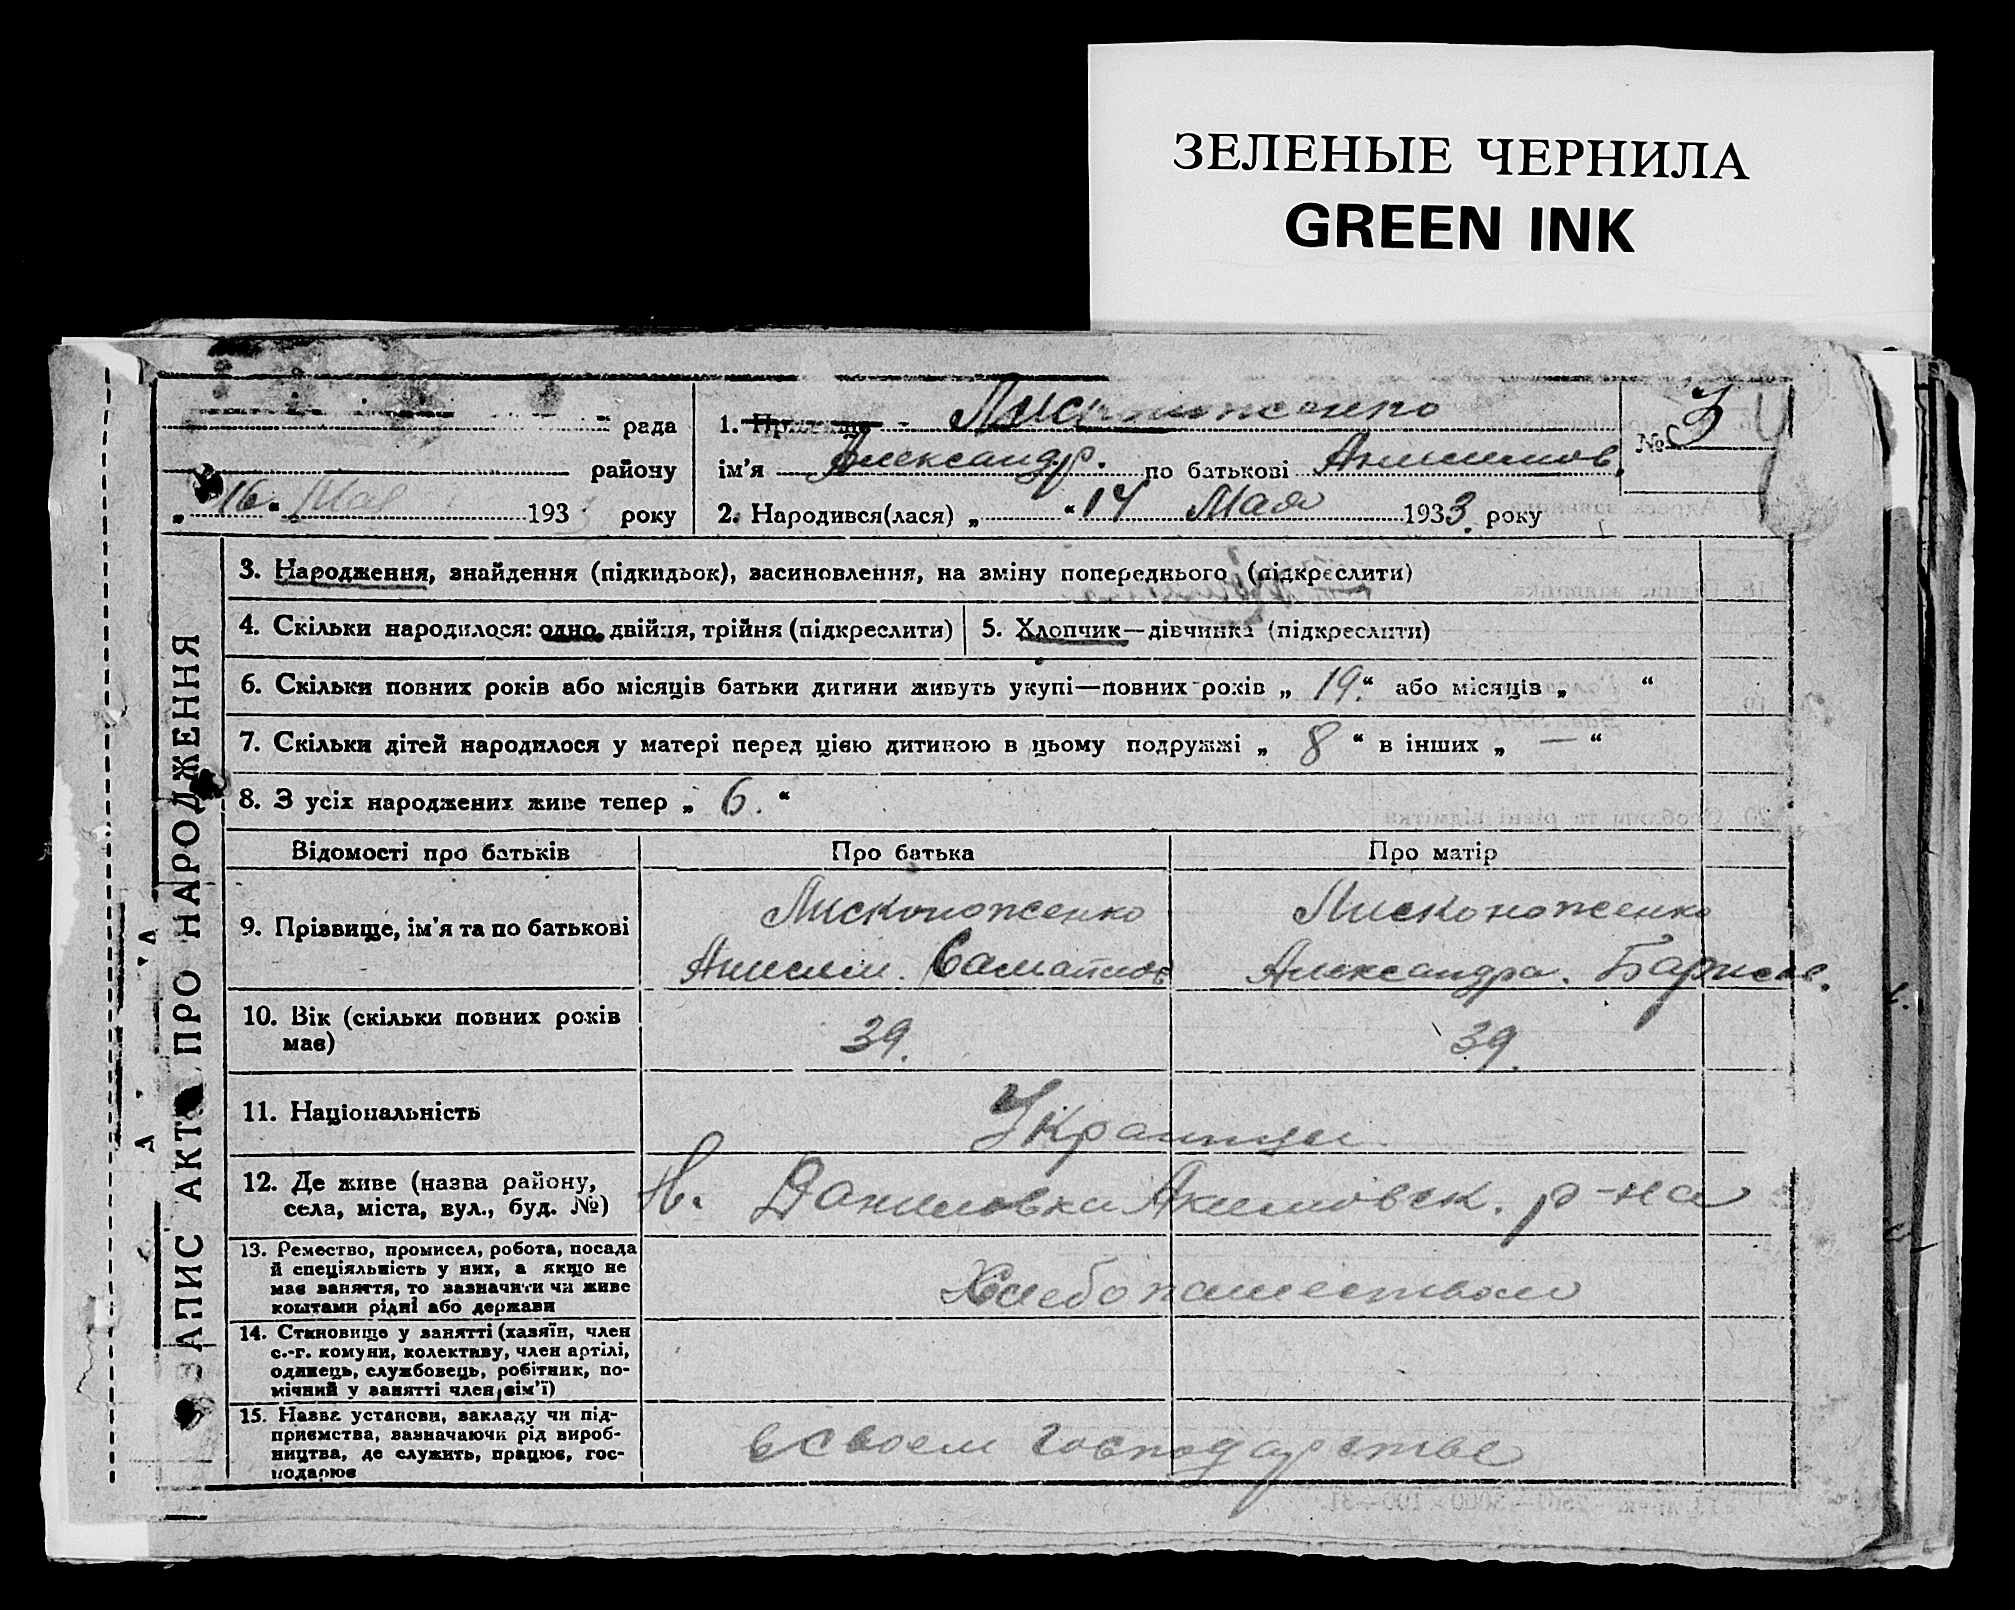 ЗЕЛЕНЫЕ ЧЕРНИЛА
GREEN INK
рада
району
„16“ Мая 193 року
1. Прізвище - Лископоженко
ім'я Александр. по батькові Анисимов.
№ 3
2. Народився(лася) „ “ 14 Мая 1933. року
ЗАПИС АКТА ПРО НАРОДЖЕННЯ
3. Народження, знайдення (підкидьок), засиновлення, на зміну попереднього (підкреслити)
4. Скільки народилося: одно, двійня, трійня (підкреслити)
5. Хлопчик—дівчинка (підкреслити)
6. Скільки повних років або місяців батьки дитини живуть укупі—повних років „ 19.“ або місяців „ “
7. Скільки дітей народилося у матері перед цією дитиною в цьому подружжі „ 8 “ в інших „ — “
8. З усіх народжених живе тепер „ 6. “
Відомості про батьків Про батька Про матір
9. Прізвище, ім'я та по батькові
Лископоженко
Лископоженко
Александра. Борисов.
10. Вік (скільки повних років
має)
39.
39.
11. Національність
Украинцы
12. Де живе (назва району,
села, міста, вул., буд. №)
Н. Даниловки Акимовск. р-на
13. Ремество, промисел, робота, посада
й спеціяльність у них, а якщо не
має заняття, то зазначити чи живе
коштами рідні або держави
Хлебопашеством
14. Становище у занятті (хазяїн, член
с.-г. комуни, колективу, член артілі,
одинець, службовець, робітник, по-
мічний у занятті член сім'ї)
15. Назва установи, закладу чи під-
приємства, зазначаючи рід вироб-
ництва, де служить, працює, гос-
подарює
в своем господарстве